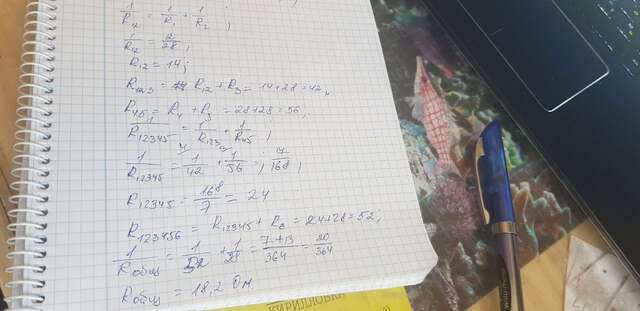 1/R12 = 1/R1 + 1/R2 ;
1/R12 = 2/28 ;
R12 = 14 ;
R123 = R12 + R3 = 14+28 = 42,
R45 = R4 + R5 = 28+28 = 56,
1/R12345 = 1/R123 + 1/R45 ,
1/R12345 = 1/42 + 1/56 = 7/168 ,
R12345 = 168/7 = 24
R123456 = R12345 + R6 = 24+28 = 52,
1/Rобщ = 1/52 + 1/28 = 7+13/364 = 20/364
Rобщ = 18,2 Ом.
КИРИЛЛОВКА